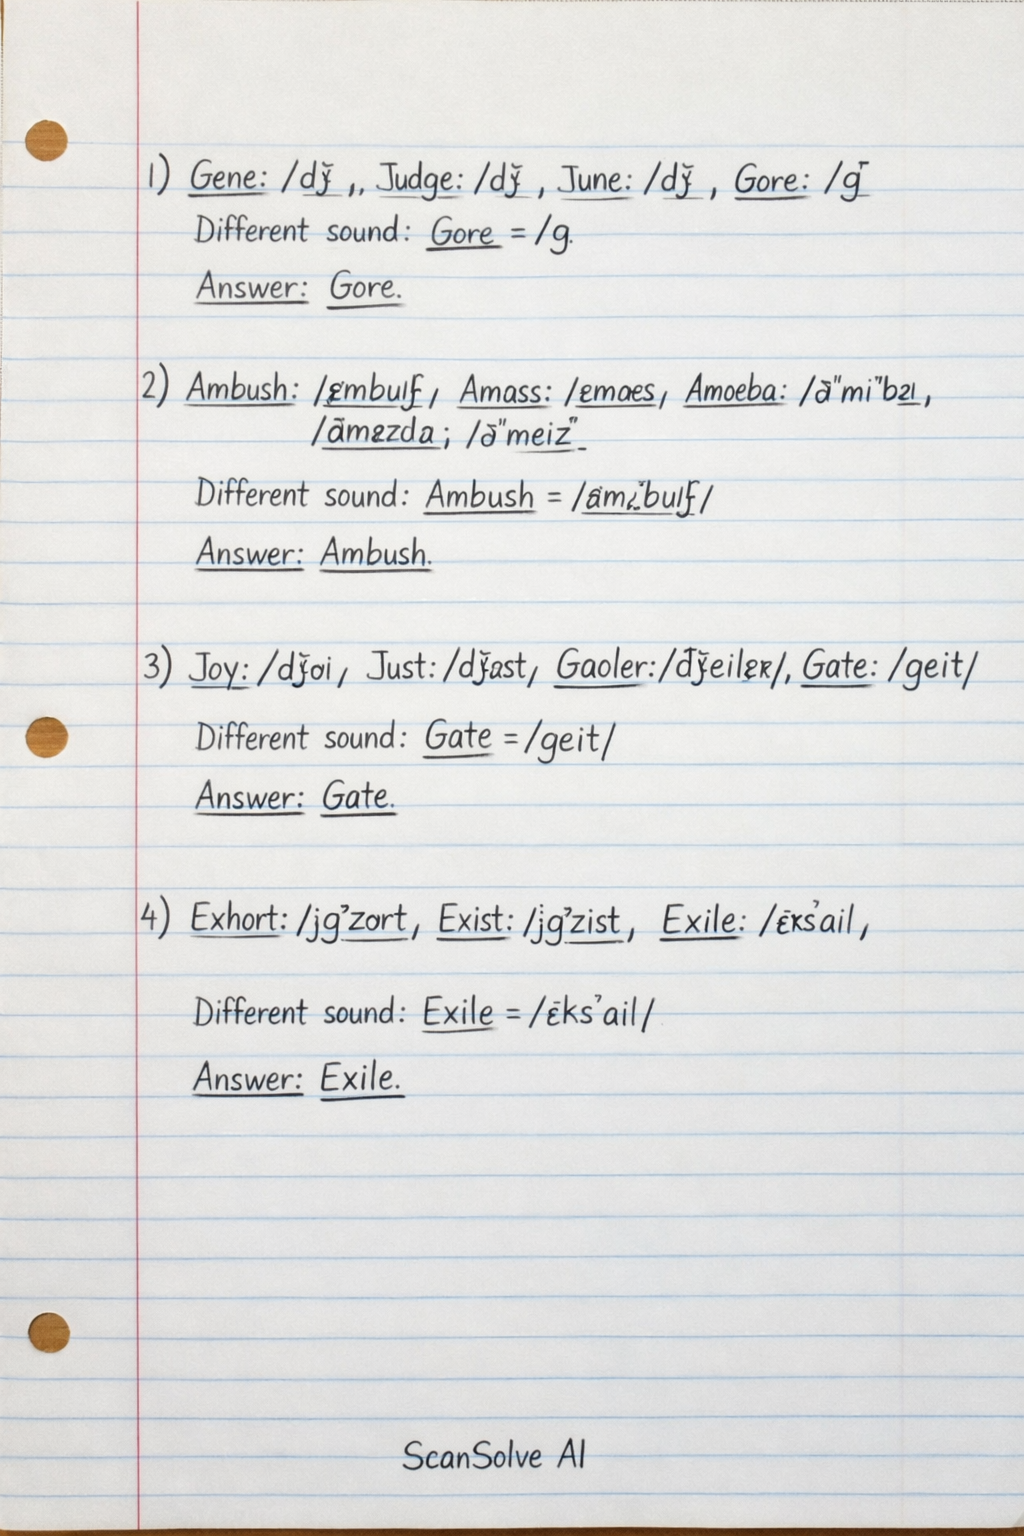 1) Gene: /dǯ ,, Judge: /dǯ , June: /dǯ , Gore: /g
Different sound: Gore = /g.
Answer: Gore.
2) Ambush: Amass: Amoeba:
Different sound: Ambush =
Answer: Ambush.
3) Joy: Just: Gaoler: Gate: /geit/
Different sound: Gate = /geit/
Answer: Gate.
4) Exhort: /jg’zort, Exist: /jg’zist, Exile: /ɛ̄ks’ail,
Different sound: Exile = /ɛ̄ks’ail/
Answer: Exile.
ScanSolve AI